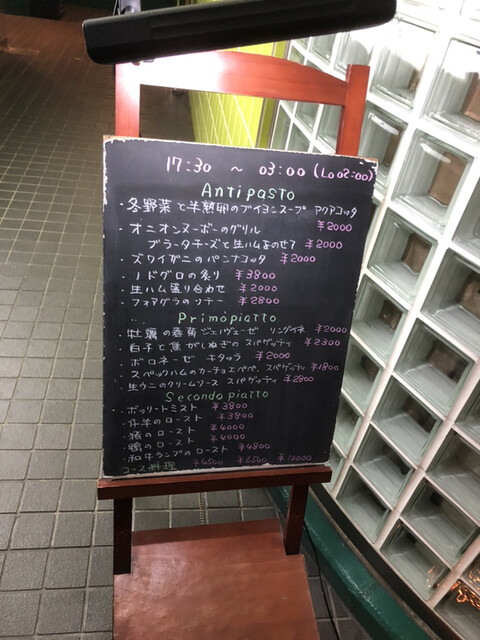 17:30 ～ 03:00 (Lo 02:00)
Antipasto
・冬野菜と半熟卵のブイヨンスープ アクアコッタ
・オニオンヌーボーのグリル ¥2000
ブラータチーズと生ハムをのせて ¥2000
・ズワイガニのパンナコッタ ¥2000
・ノドグロの炙り ¥3800
・生ハム盛り合わせ ¥2000
・フォアグラのソテー ¥2800
Primopiatto
・牡蠣の春菊ジェノヴェーゼ リングイネ ¥2000
・白子と焦がしねぎのスパゲッティ ¥2300
・ボロネーゼ キタッラ ¥2000
・スペックハムのカーチョエペペ、スパゲッティ ¥1800
・生ウニのクリームソース スパゲッティ ¥2800
Secondopiatto
・ボッリートミスト ¥3800
・仔羊のロースト ¥3800
・猪のロースト ¥4000
・鴨のロースト ¥4000
・和牛ランプのロースト ¥4800
コース料理 ¥4500 ¥6500 ¥10000